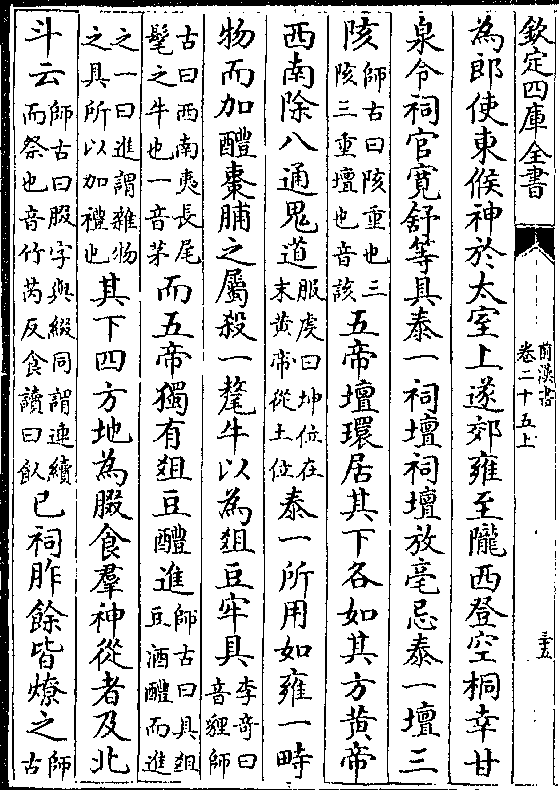 欽定四庫全書
前漢書
卷二十五上
三五
為郎使東候神於太室上遂郊雍至隴西登空桐幸甘
泉令祠官寛舒等具泰一祠壇祠壇放亳忌泰一壇三
陔師古曰陔重也三陔三重壇也音該五帝壇環居其下各如其方黄帝
西南除八通鬼道服虔曰坤位在末黄帝從土位泰一所用如雍一畤
物而加醴棗脯之屬殺一氂牛以為爼豆牢具李奇曰音貍師
古曰西南夷長尾髦之牛也一音茅而五帝獨有爼豆醴進師古曰具爼豆酒醴而進
之一曰進謂雜物之具所以加禮也其下四方地為腏食羣神從者及北
斗云師古曰腏字與綴同謂連續而祭也音竹芮反食讀曰飤已祠胙餘皆燎之師古